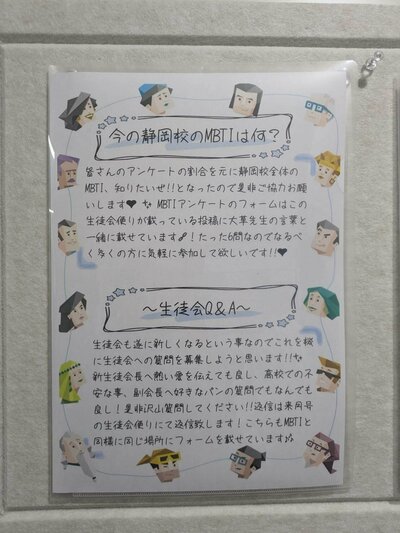 今の静岡校のMBTIは何？
皆さんのアンケートの割合を元に静岡校全体の
MBTI、知りたいぜ!!となったので是非ご協力お願
いします♥✨MBTIアンケートのフォームはこの
生徒会便りが載っている投稿に大草先生の言葉と
一緒に載せています🔗！たった6問なのでなるべ
く多くの方に気軽に参加して欲しいです!!♥
〜生徒会Q&A〜
生徒会も遂に新しくなるという事なのでこれを機
に生徒会への質問を募集しようと思います!!✨
新生徒会長へ熱い愛を伝えても良し、高校での不
安な事、副会長へ好きなパンの質問でもなんでも
良し！是非沢山質問してください!!返信は来月号
の生徒会便りにて返信致します！こちらもMBTIと
同様に同じ場所にフォームを載せています🎶